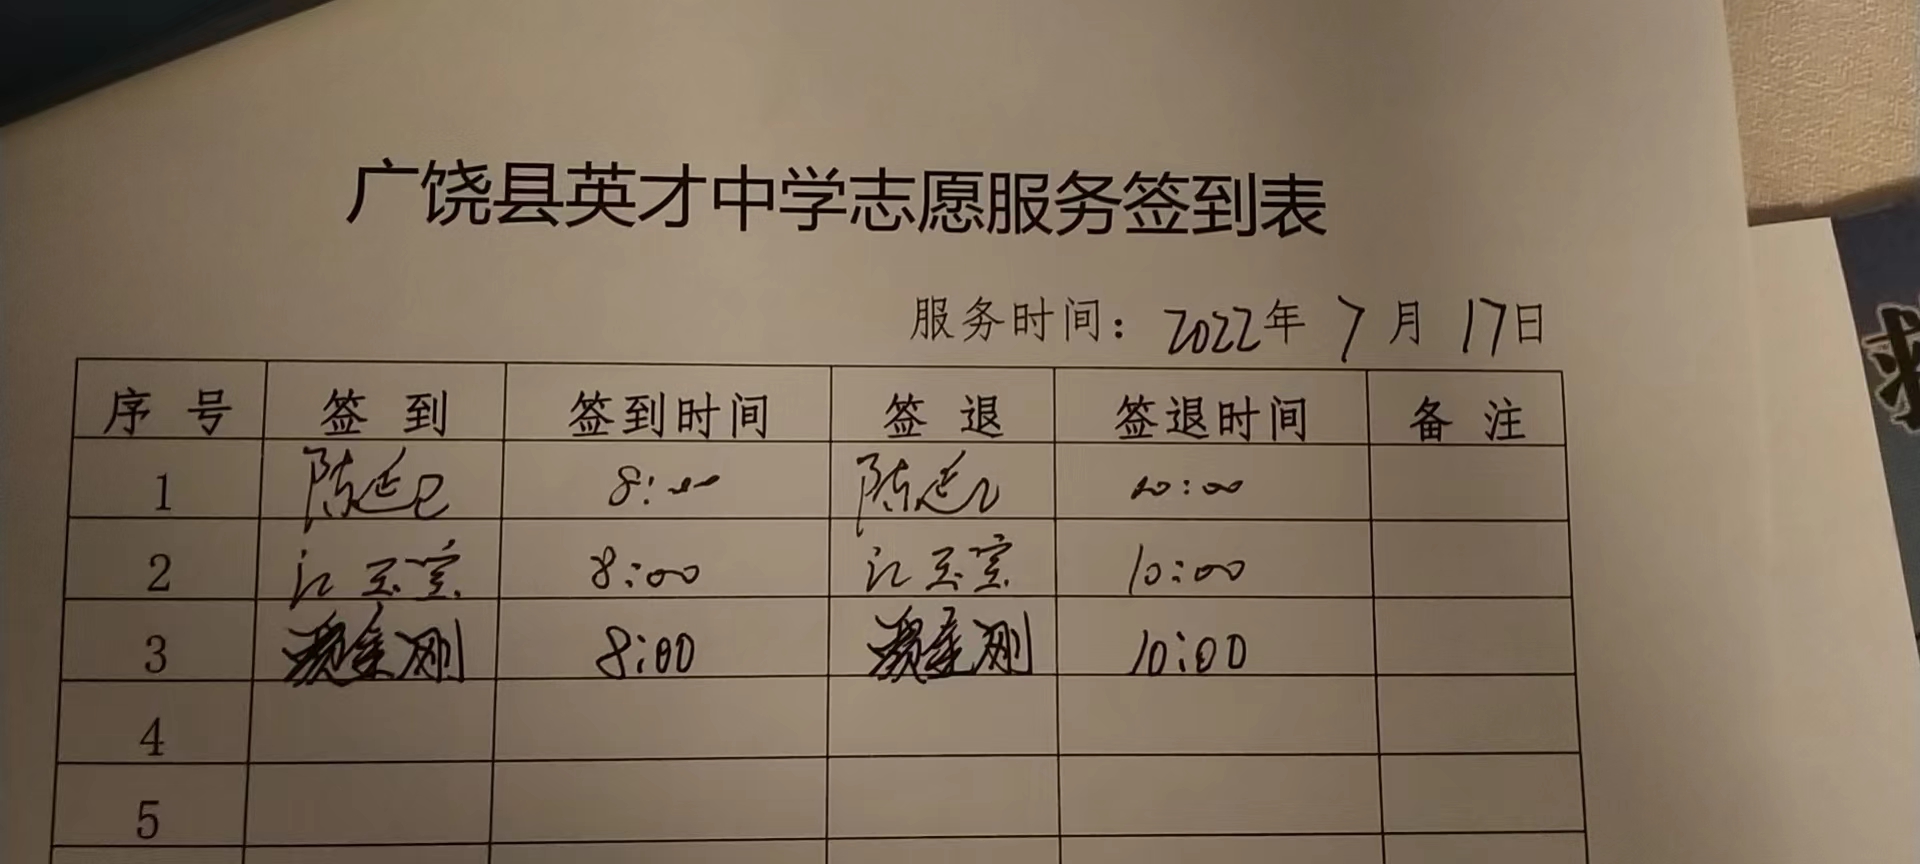 广饶县英才中学志愿服务签到表
服务时间：2022年 7月 17日
序号 签到 签到时间 签退 签退时间 备注
1 陈延 8:00 陈延 10:00
2 江玉 8:00 江玉 10:00
3 刚 8:00 刚 10:00
4
5